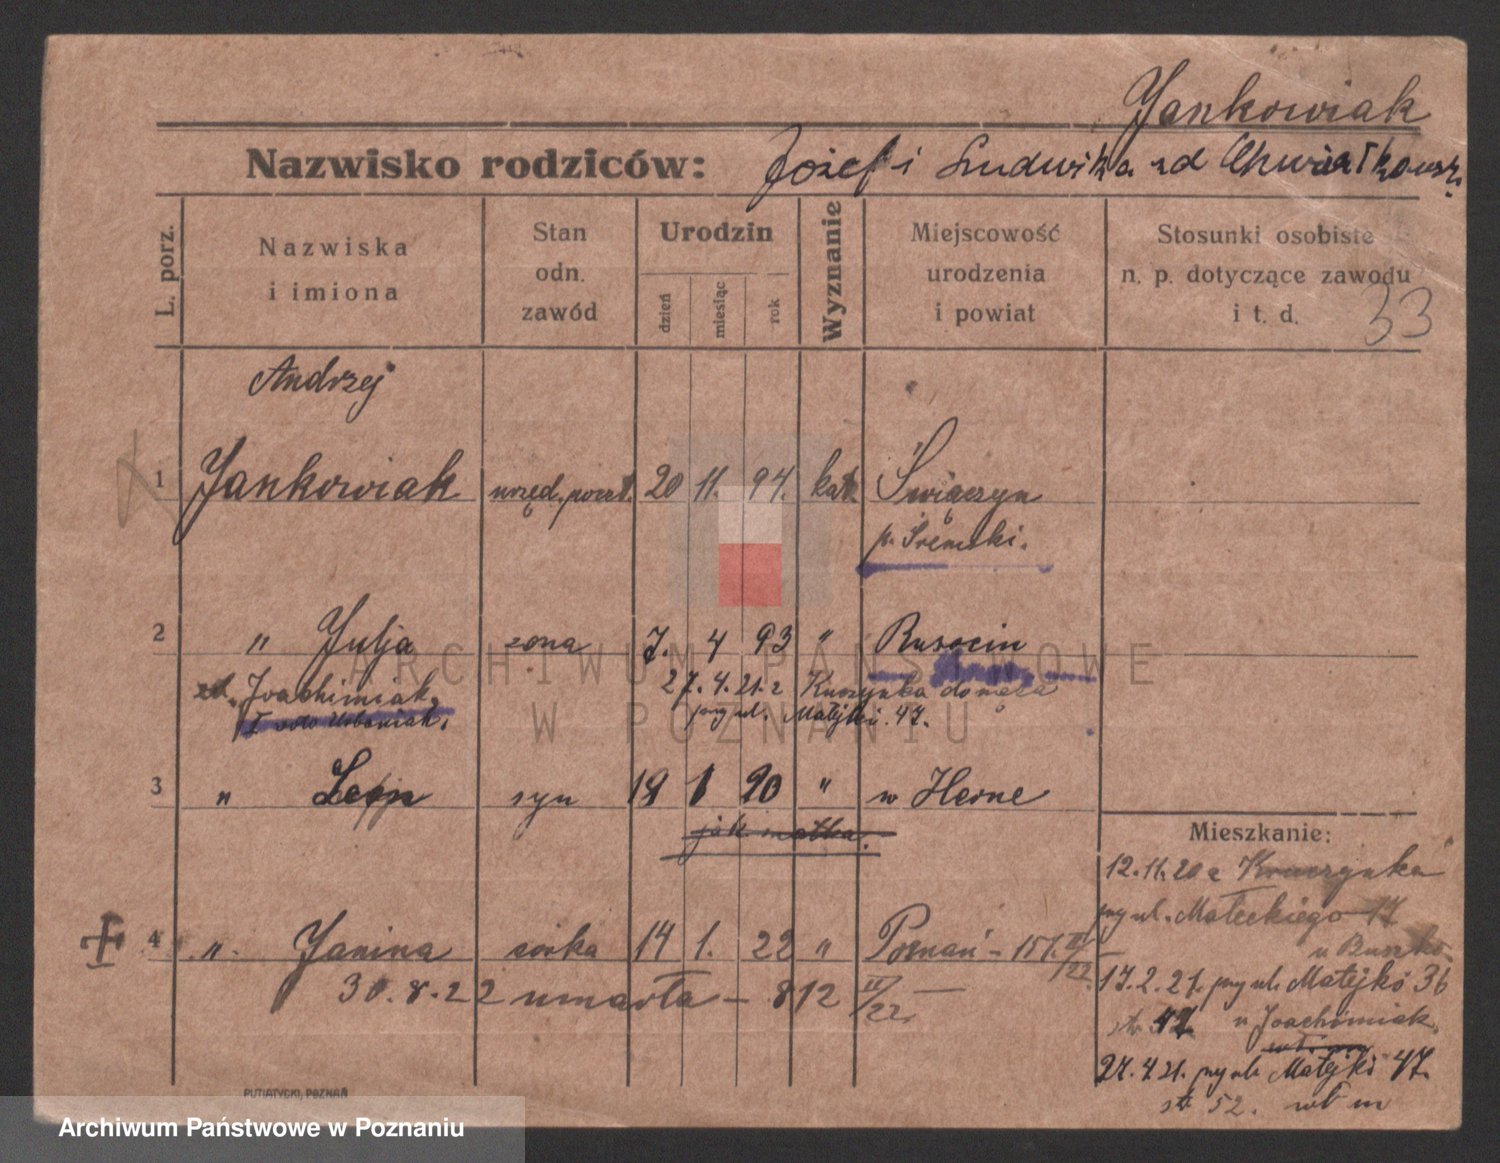 Jankowiak
Nazwisko rodziców: Józef i Ludwika zd Chwiałkowski
L. porz.
Nazwiska
i imiona
Stan
odn.
zawód
Urodzin
dzień
miesiąc
rok
Wyznanie
Miejscowość
urodzenia
i powiat
Stosunki osobiste
n. p. dotyczące zawodu
i t. d.
33
Andrzej
1 Jankowiak urzęd. poczt. 20 11. 94. kat. Święczyn
p. Śremski.
2 " Julja żona 7. 4 93 " Rusocin
zd. Joachimiak, 27. 4. 21. z Kruszynka domena
I voto Urbaniak. przy ul. Matejki 47.
3 " syn 19 1 20 " w Herne
jak matka.
4 " Janina córka 14 1. 22 " Poznań - 151. II/22
30.8.22 umarła - 812 II/22.
Mieszkanie:
12.11.20 z
przy ul. Małeckiego 17
u
17.2.21. przy ul. Matejki 36
str. u Joachimiak
27.4.21. przy ul. Matejki 47.
str 52.
PUTIATYCKI, POZNAŃ
ARCHIWUM PAŃSTWOWE
W POZNANIU
Archiwum Państwowe w Poznaniu